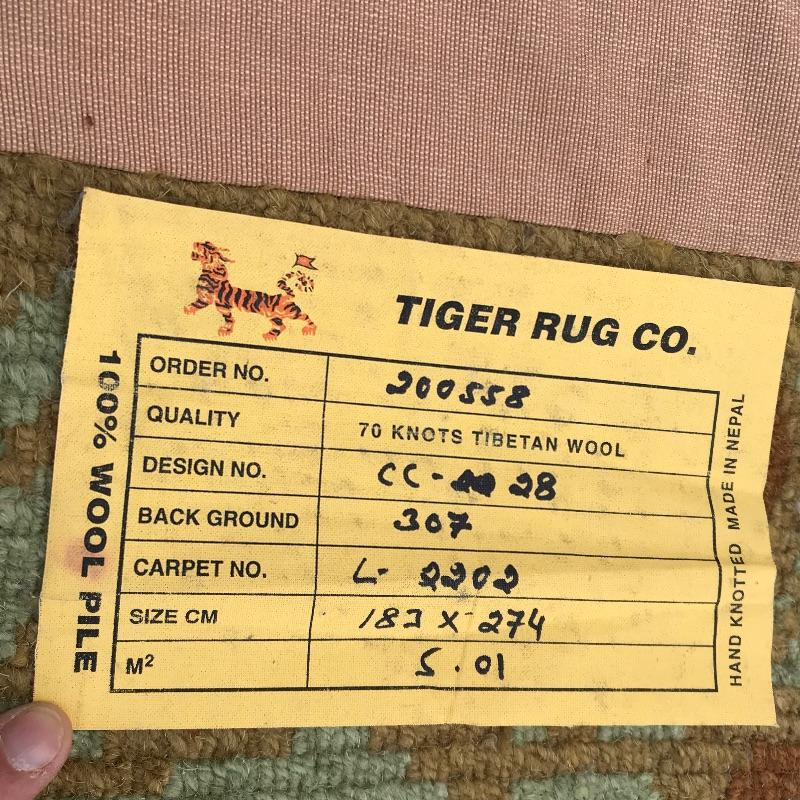 TIGER RUG CO.
ORDER NO. 200558
QUALITY 70 KNOTS TIBETAN WOOL
DESIGN NO. CC- 28
BACK GROUND 307
CARPET NO. L- 2202
SIZE CM 183 X 274
M² 5.01
100% WOOL PILE
HAND KNOTTED MADE IN NEPAL